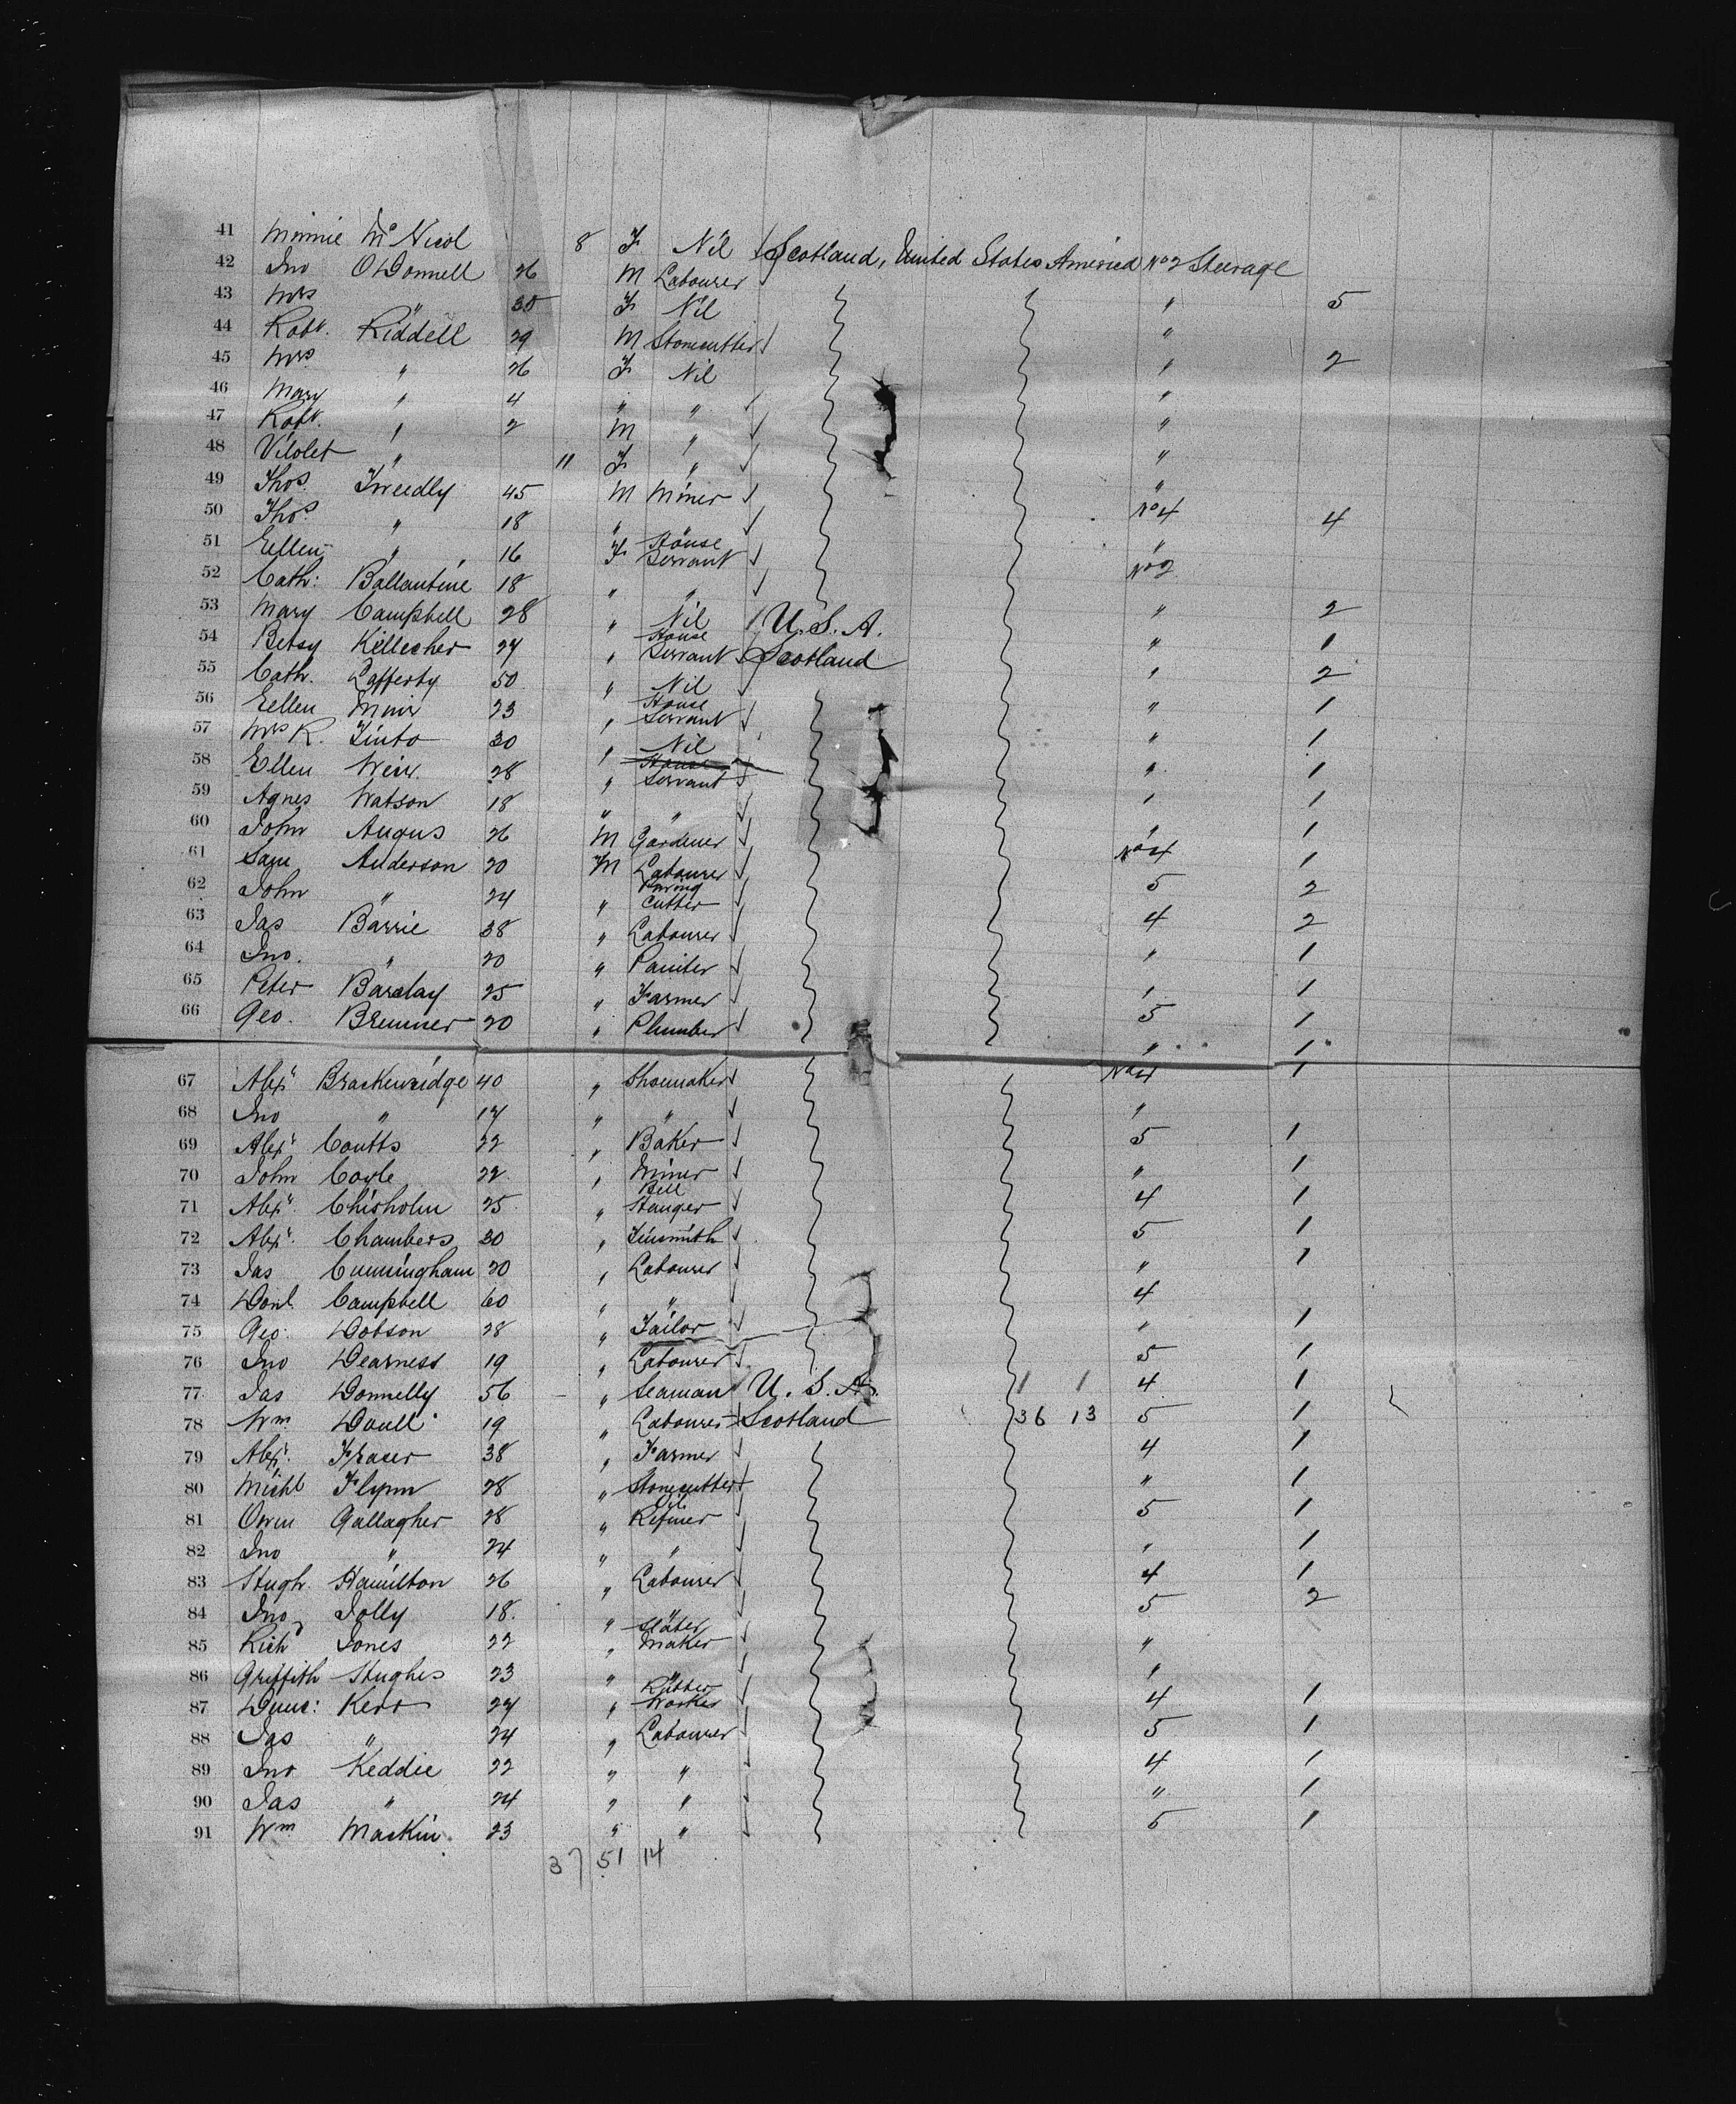 41 Minnie McNicol 8 F Nil Scotland, United States America No 2 Steerage
42 Jno O'Donnell 26 M Labourer
43 Mrs " 35 F Nil " 5
44 Robt. Riddell 29 M Stonecutter "
45 Mrs. " 26 F Nil " 2
46 Mary " 4 " " "
47 Robt. " 2 M " "
48 Vilolet " 11 F " "
49 Thos. Tweedly 45 M Miner "
50 Thos. " 18 " " No 4 4
51 Eellen " 16 F House Servant "
52 Cath: Ballantine 18 " " No 2
53 Mary Campbell 28 " Nil U.S.A. " 2
54 Betsy Killecher 27 " House Servant Scotland " 1
55 Cath. Lafferty 50 " Nil " 2
56 Eellen Muir 23 " House Servant " 1
57 Mrs R. Tinto 30 " Nil " 1
58 Ellen Weir 28 " House Servant " 1
59 Agnes Watson 18 " " " 1
60 John Angus 26 M Gardener " 1
61 Sam Anderson 20 M Labourer No 4 1
62 John " 24 " Paving Cutter 5 2
63 Jas Barrie 38 " Labourer 4 2
64 Jno. " 20 " Painter " 1
65 Peter Barclay 25 " Farmer " 1
66 Geo. Bremner 20 " Plumber 5 1
" 1
67 Alexr Brackenridge 40 " Shoemaker No 4 1
68 Jno " 17 " " "
69 Alexr Coutts 22 " Baker 5 1
70 John Coyle 22 " Miner " 1
71 Alexr. Chisholm 25 " Bell Hanger 4 1
72 Alexr. Chambers 30 " Tinsmith 5 1
73 Jas Cunningham 20 " Labourer " 1
74 Donl. Campbell 60 " " 4
75 Geo. Dobson 28 " Tailor " 1
76 Jno Dearness 19 " Labourer 5 1
77 Jas Donnelly 56 " Seaman U.S.A. 1 1 4 1
78 Wm Doull 19 " Labourer Scotland 36 13 5 1
79 Alexr. Fraser 38 " Farmer 4 1
80 Michl Flynn 28 " Stonecutter " 1
81 Owen Gallagher 28 " Oil Refiner 5 1
82 Jno " 24 " " " 1
83 Hugh. Hamilton 26 " Labourer 4 1
84 Jno Jolly 18. " " 5 2
85 Richd Jones 22 " Slater Maker "
86 Griffith Hughes 23 " " "
87 Dunc: Kerr 27 " Rubber Worker 4 1
88 Jas " 24 " Labourer 5 1
89 Jno Keddie 22 " " 4 1
90 Jas " 24 " " " 1
91 Wm Mackin 23 " " 5 1
37 51 14